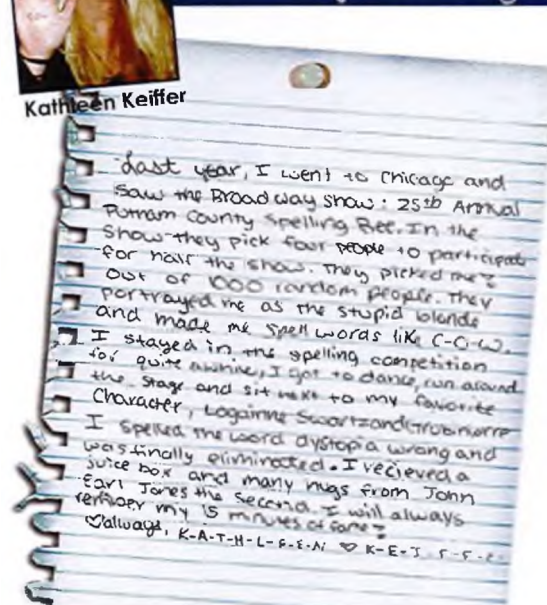 Kathleen Keiffer
Last year, I went to Chicago and
saw the Broadway show: 25th Annual
Putnam County Spelling Bee. In the
show they pick four people to participate
for half the show. They picked me
out of 1000 random people. They
portrayed me as the stupid blonde
and made me spell words like C-O-W.
I stayed in the spelling competition
for quite awhile, I got to dance, run around
the stage and sit next to my favorite
Character, Logainne
I spelled the word dystopia wrong and
was finally eliminated. I recieved a
juice box and many hugs from John
Earl Jones the second. I will always
my 15 minutes of fame
♡always, K-A-T-H-L-E-E-N ♡ K-E-I-F-F-E-